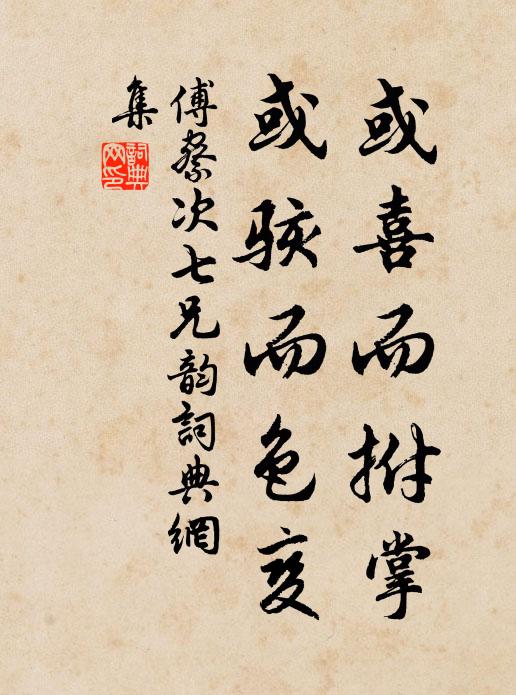 或喜而拊掌
或骇而色变
傅察次七兄韵詞典網
集
詞典
网印